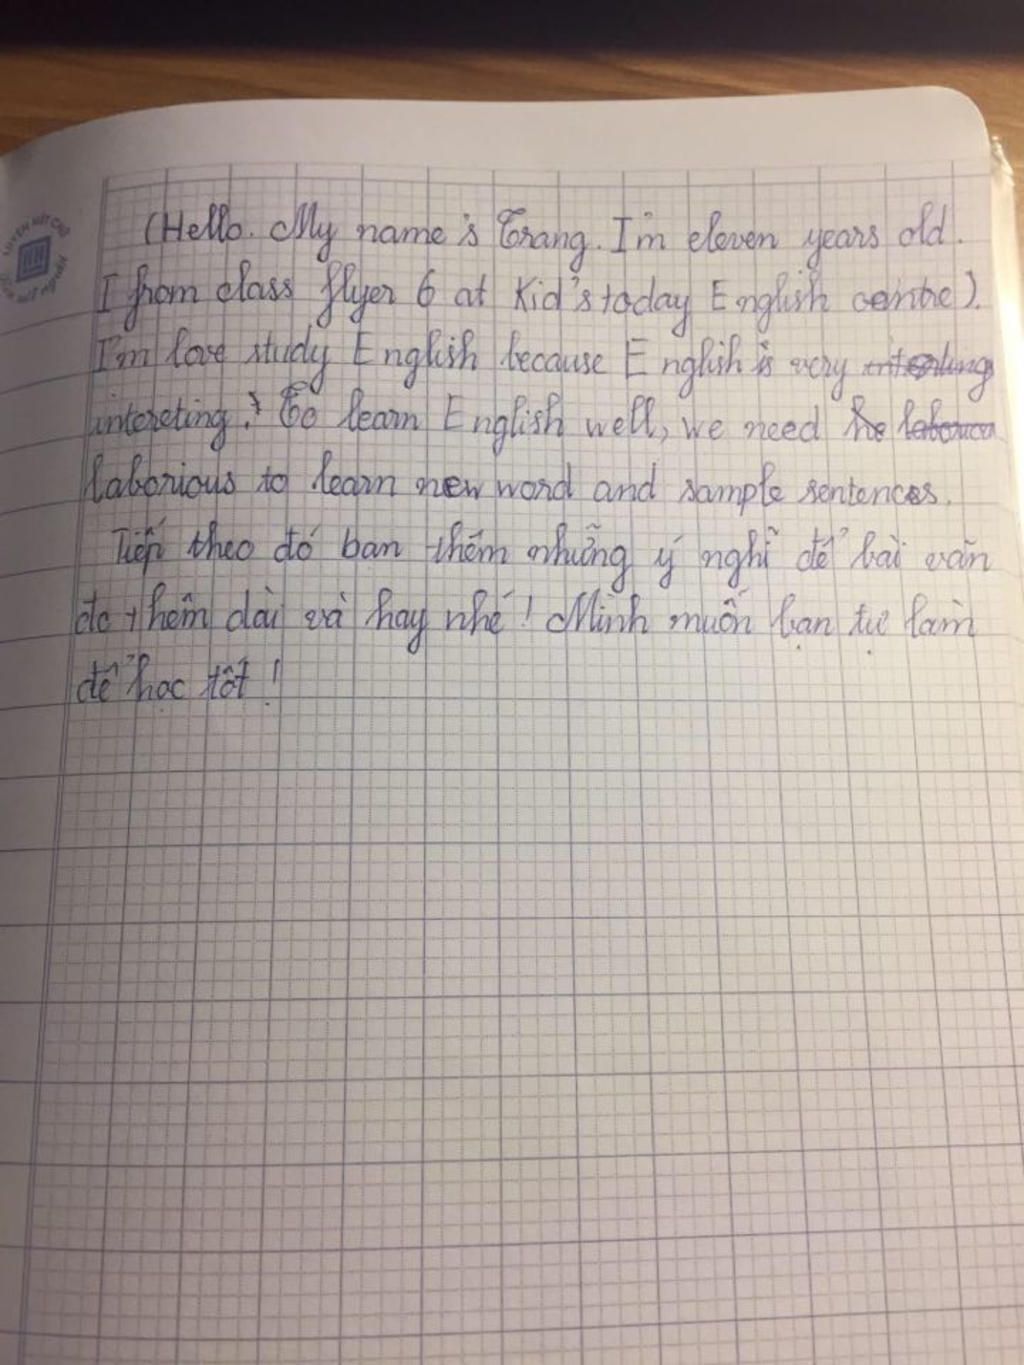 (Hello. My name's Trang. I'm eleven years old.
I from class flyer 6 at Kid's today English centre).
I'm love study English because English is very
intereting. To learn English well, we need
laborious to learn new word and sample sentences.
Tiếp theo đó bạn thêm những ý nghĩ để bài văn
đc thêm dài và hay nhé! Mình muốn bạn tự làm
để học tốt!